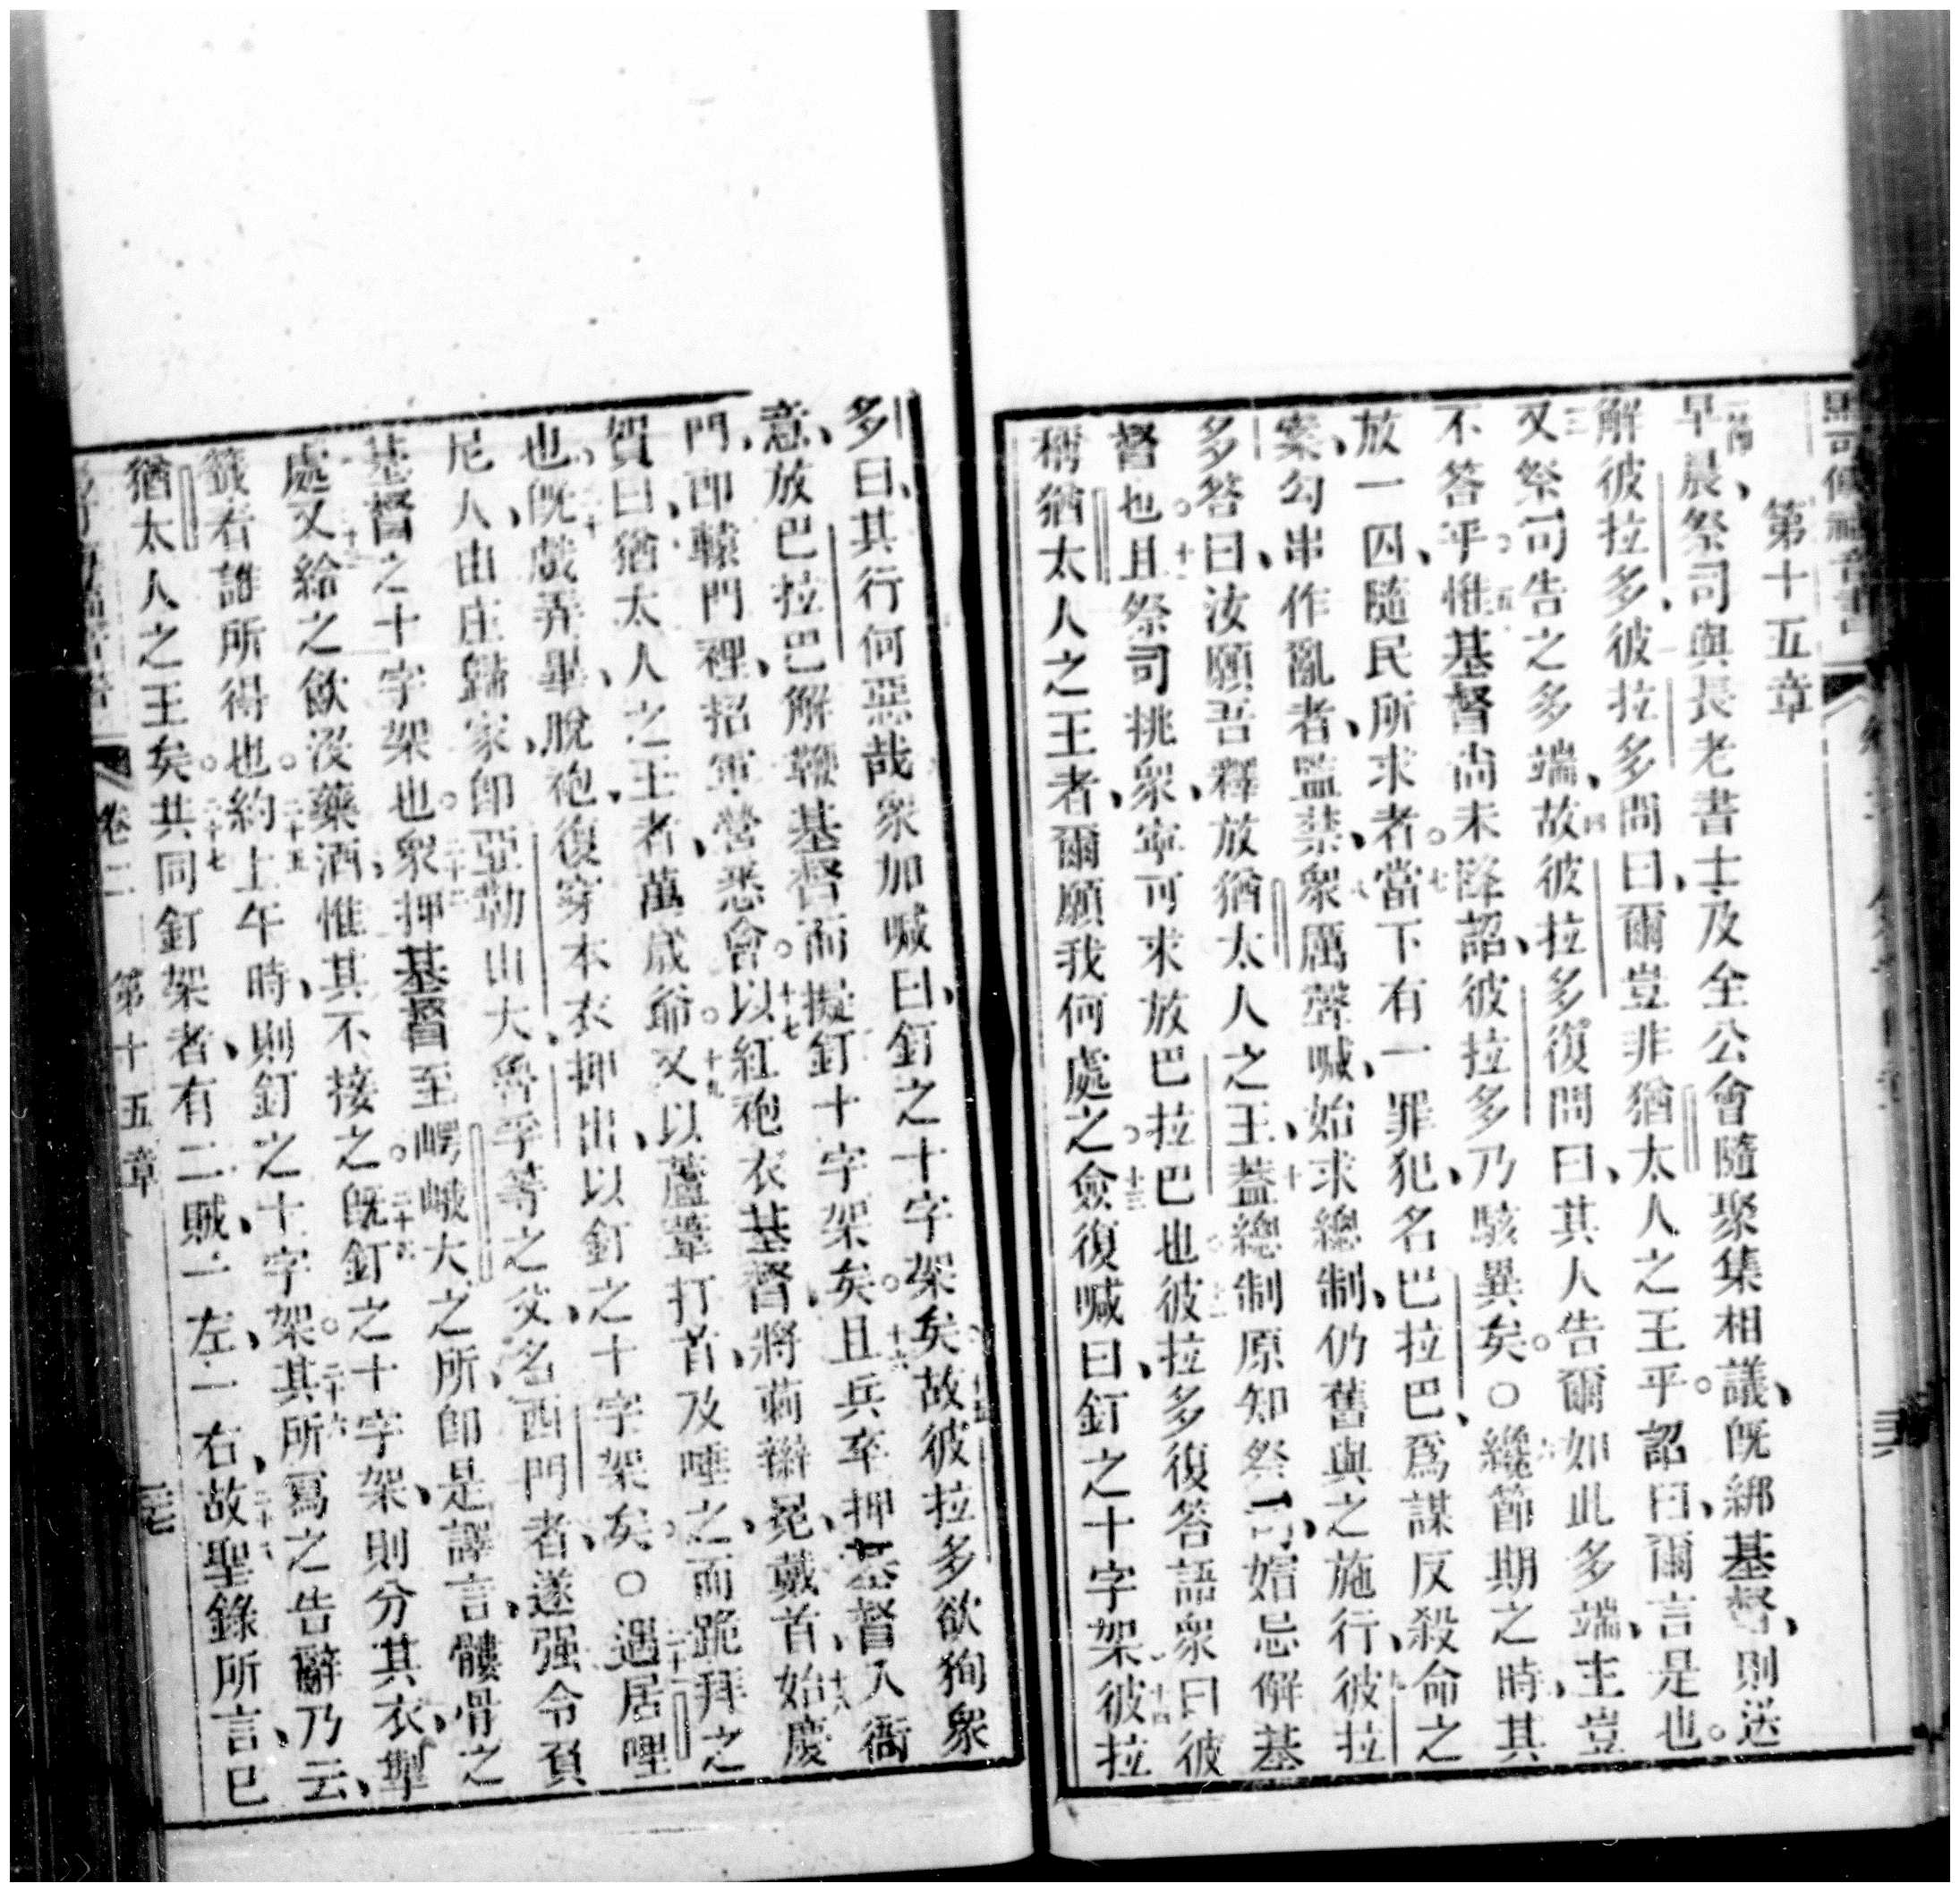 第十五章
早晨祭司與長老書士及全公會隨聚集相議、既綁基督、則送
解彼拉多、彼拉多問曰、爾豈非猶太人之王乎。詔曰、爾言是也。
又祭司告之多端、故彼拉多復問曰、其人告爾如此多端、主豈
不答乎。惟基督尚未降詔、彼拉多乃駭異矣。○纔節期之時、其
放一囚、隨民所求者。當下有一罪犯、名巴拉巴、爲謀反殺命之
案、勾串作亂者、監禁、衆厲聲喊、始求總制、仍舊與之施行、彼拉
多答曰、汝願吾釋放猶太人之王、蓋總制原知祭司、妬忌解基
督也。且祭司挑衆、寧可求放巴拉巴也。彼拉多復答語衆曰、彼
稱猶太人之王者、爾願我何處之。僉復喊曰、釘之十字架、彼拉
多曰、其行何惡哉、衆加喊曰、釘之十字架矣、故彼拉多欲狥衆
意、放巴拉巴解鞭基督而擬釘十字架矣。且兵卒押基督、入衙
門、卽轅門裡、招軍營悉會。以紅袍衣基督、將莿辮冕、戴首始慶
賀曰、猶太人之王者、萬歲爺。又以蘆葦打首、及唾之、而跪拜之
也。既戲弄畢、脫袍、復穿本衣、押出、以釘之十字架矣。○遇居哩
尼人、由庄歸家、卽亞勒山大魯孚等之父、名西門者、遂强令負
基督之十字架也。衆押基督至崿嶬大、之所、卽是譯言、髏骨之
處又給之飲沒藥酒、惟其不接之。既釘之十字架、則分其衣、掣
籤看誰所得也。約上午時、則釘之十字架。其所寫之告辭乃云、
猶太人之王矣。共同釘架者、有二賊、一左、一右、故聖錄所言、已
卷二 第十五章